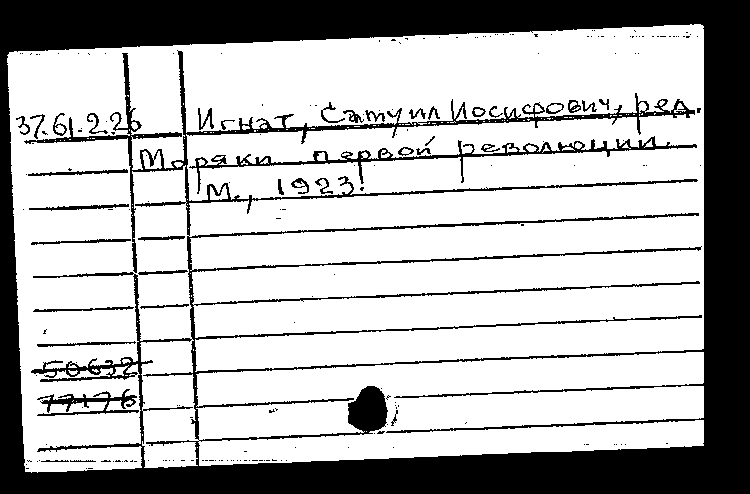 37.61.2.26 Игнат, Самуил Иосифович, ред.
Моряки первой революции.
М., 1923.
50632
77176